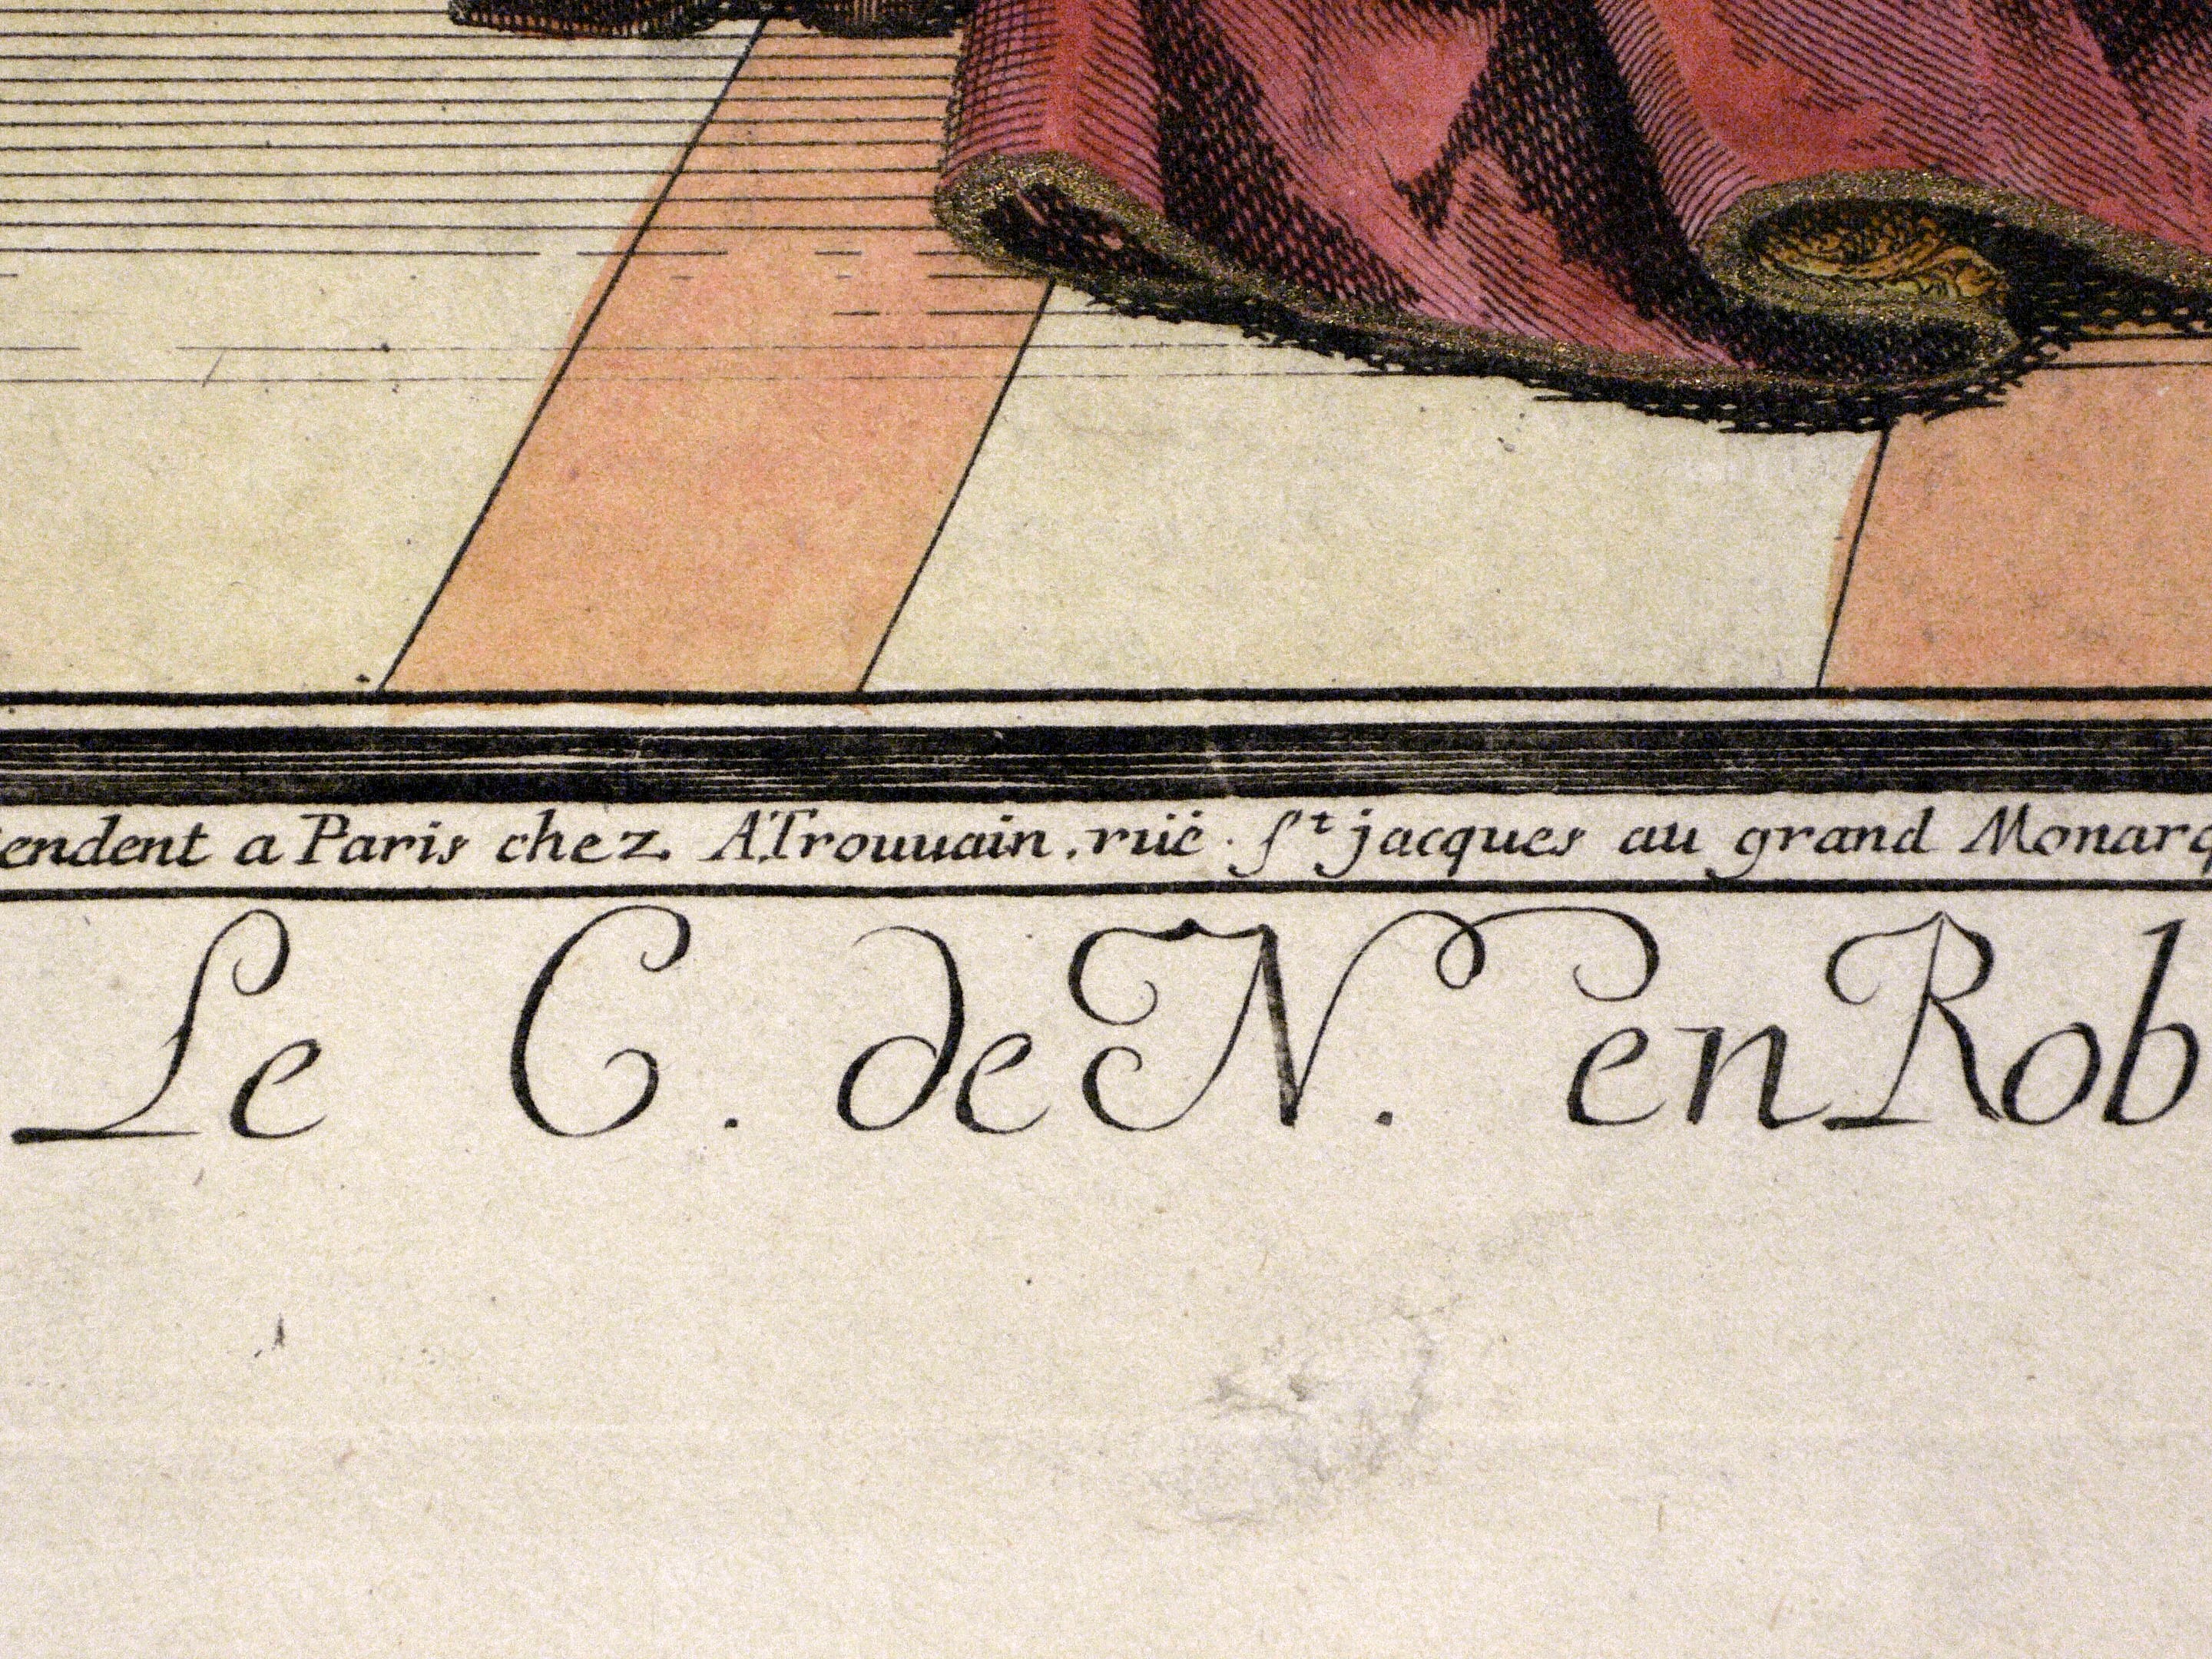 endent a Paris chez A.Trouuain .ruë . St jacques au grand Monarq
Le C. de N. en Rob